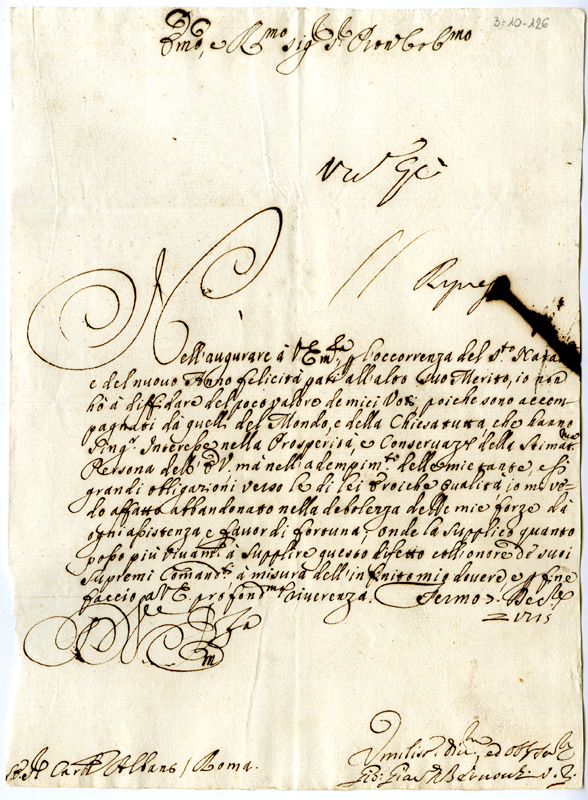 3-10-126
Em̃o, e R.mo Sig.r Pron Col.mo
Nell'augurare à V. Em.za p l'occorrenza del S.to Nata
e del nuovo Anno felicità pari all'alto suo Merito, io non
hò à diffidare del poco valore de miei Voti, poiche sono accom
pagnati dà quelli del Mondo, e della Chiesa tutta, che hanno
sing.r Interesse nella Prosperità, e Conservaz.e della Stimat.ma
Persona dell' E. V. mà nell'adempim.to delle mie tante, e sì
grandi obligazioni verso le di lei Eroiche qualità, io mi ve-
do affatto abbandonato nella debolezza delle mie forze dà
ogni assistenza e favor di fortuna; Onde la Supplico quanto
posso più vivam.te à Supplire questo difetto coll'onore de suoi
Supremi Comand.ti à misura dell'infinito mio dovere e p fine
faccio a V. E. profond.ma riverenza. Fermo 7. Dec.re
1715
V. Em.za
S.r Card.l Albani / Roma.
Umiliss.o Div.mo, ed Oss.mo Ser.re